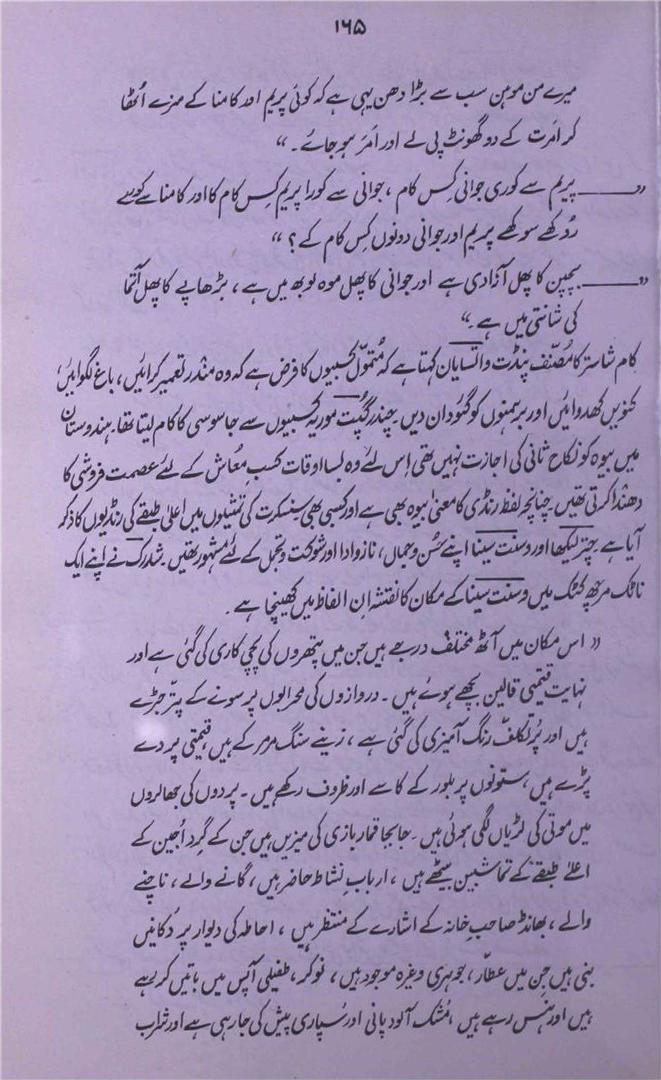 ۱۶۵
میرے من موہن سب سے بڑا دھن یہی ہے کہ کوئی پریم اور کامنا کے مزے اٹھا
کر امرت کے دو گھونٹ پی لے اور اَمَر ہو جائے۔ "
"ــــــ پریم سے کوری جوانی کِس کام ، جوانی سے کورا پریم کِس کام کا اور کامنا سے کورے
رُوکھے سوکھے پریم اور جوانی دونوں کِس کام کے ؟ "
"ــــــ بچپن کا پھل آزادی ہے اور جوانی کا پھل موہ لوبھ میں ہے ، بڑھاپے کا پھل آتما
کی شانتی میں ہے ۔"
کام شاستر کا مُصنّف پنڈت واتسایان کہتا ہے کہ مُتموّل کسبیوں کا فرض ہے کہ وہ مندر تعمیر کرائیں ، باغ لگوائیں،
کنویں کھدوائیں اور برہمنوں کو گئودان دیں ۔ چندر گپت موریہ کسبیوں سے جاسوسی کا کام لیتا تھا۔ ہندوستان
میں بیوہ کو نکاحِ ثانی کی اجازت نہیں تھی اِس لئے وہ بسا اوقات کسبِ معاش کے لئے عصمت فروشی کا
دھندا کرتی تھیں چنانچہ لفظ رنڈی کا معنیٰ بیوہ بھی ہے اور کسبی بھی سنسکرت کی تمثیلوں میں اعلیٰ طبقے کی رنڈیوں کا ذکر
آیا ہے ۔ چتر لیکھا اور وسنت سینا اپنے حُسن و جمال، ناز و ادا اور شوکت و تجمل کے لئے مشہور تھیں ۔ شدرک نے اپنے ایک
ناٹک مرچھ کٹک میں وسنت سینا کے مکان کا نقشہ اِن الفاظ میں کھینچا ہے ۔
" اس مکان میں آٹھ مختلف درجے ہیں جن میں پتھروں کی پچی کاری کی گئی ہے اور
نہایت قیمتی قالین بچھے ہوئے ہیں ۔ دروازوں کی محرابوں پر سونے کے پتّر جڑے
ہیں اور پُر تکلف رنگ آمیزی کی گئی ہے ، زینے سنگ مرمر کے ہیں ، قیمتی پردے
پڑے ہیں ، ستونوں پر بلور کے کاسے اور ظروف رکھے ہیں ۔ پردوں کی جھالروں
میں موتی کی لڑیاں لگی ہوئی ہیں ۔ جابجا قمار بازی کی میزیں ہیں جن کے گرد اُجین کے
اعلےٰ طبقے کے تماشبین بیٹھے ہیں ، اربابِ نشاط حاضر ہیں ، گانے والے ، ناچنے
والے ، بھانڈ صاحبِ خانہ کے اشارے کے منتظر ہیں ، احاطہ کی دیوار پر دُکانیں
بنی ہیں جِن میں عطّار ، جوہری وغیرہ موجود ہیں ، نوکر ، طفیلی آپس میں باتیں کر رہے
ہیں اور ہنس رہے ہیں ، مُشک آلود پانی اور سُپاری پیش کی جا رہی ہے اور شراب